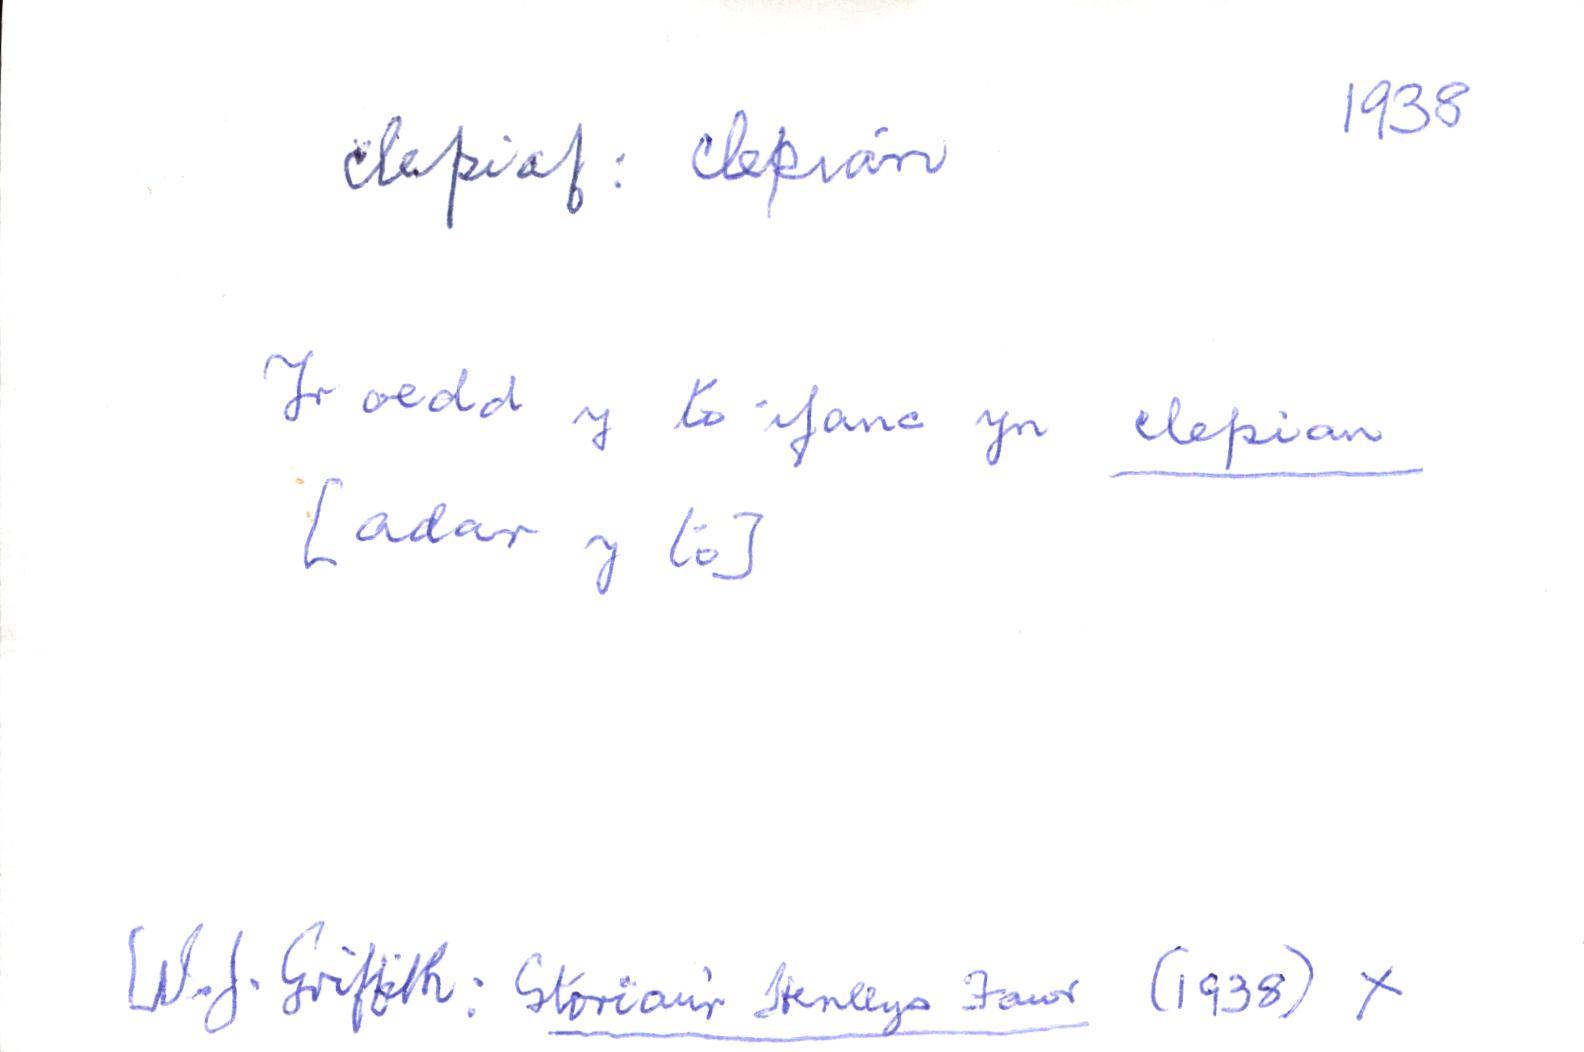 1938
clepiaf: clepian
Yr oedd y to ifanc yn clepian
[adar y to]
[W.J. Griffith: Storïau'r Henllys Fawr (1938) X